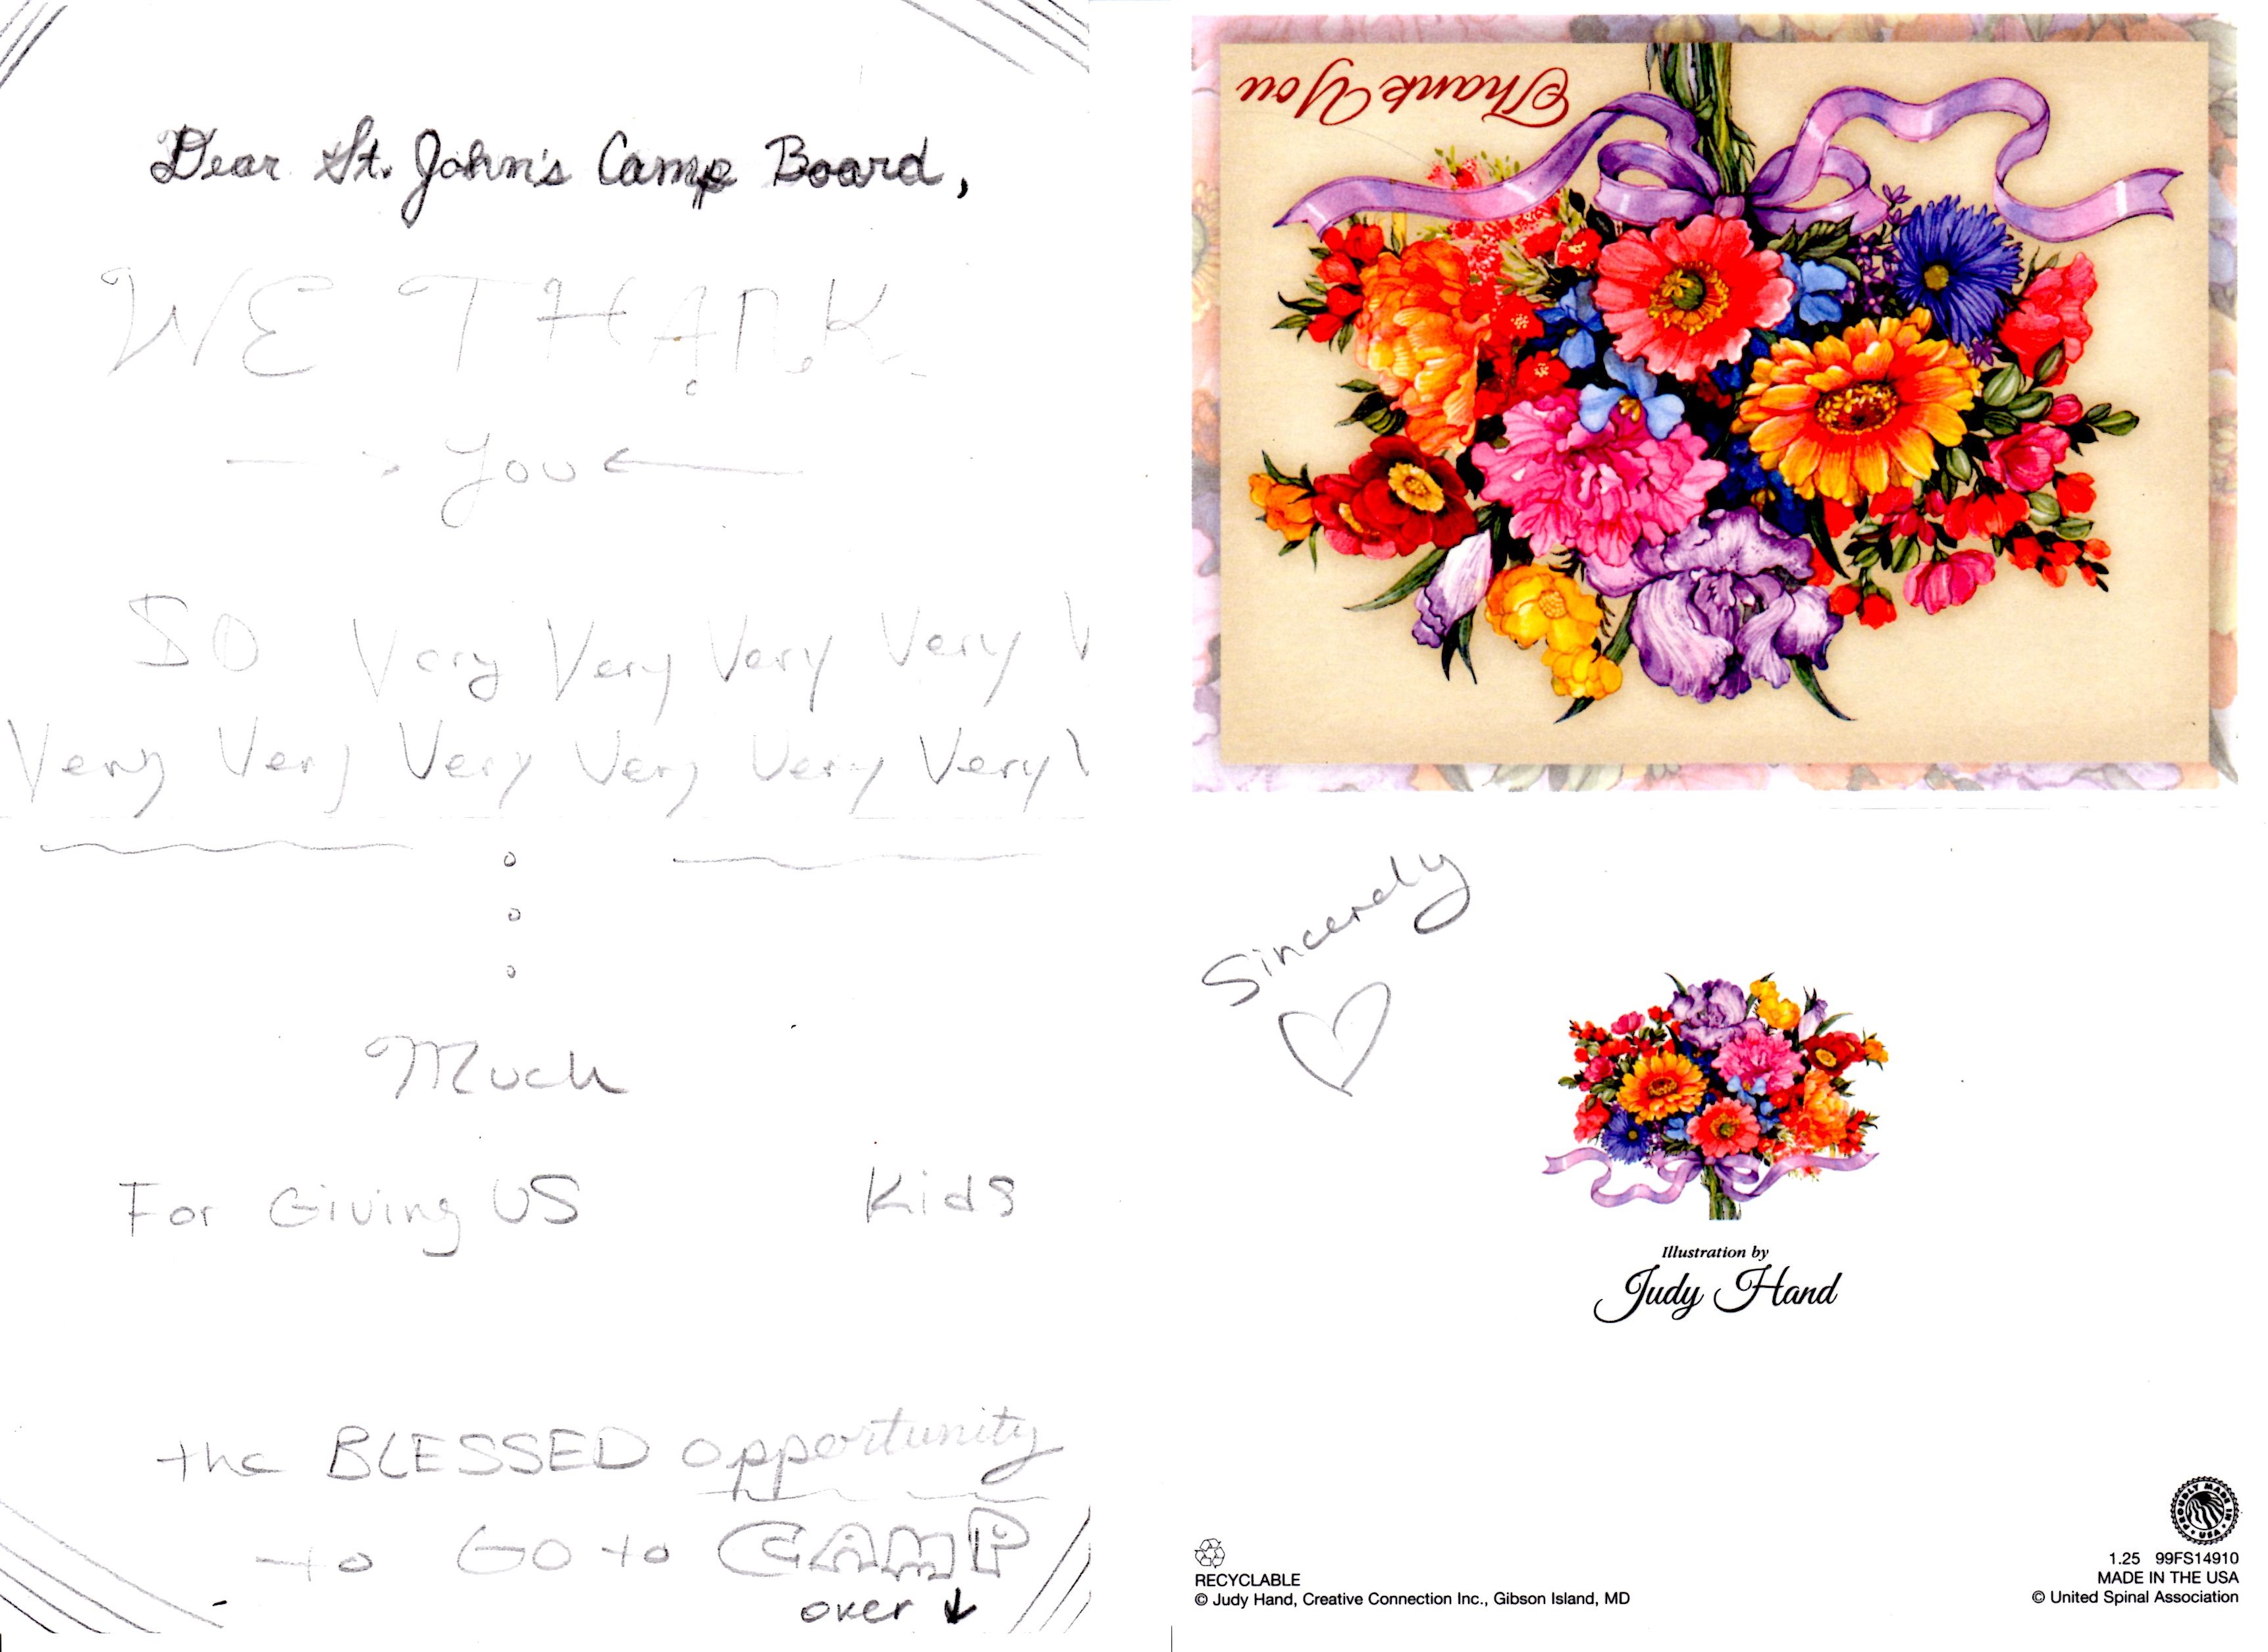 Dear St. John's Camp Board,
WE THANK
you
SO Very Very Very Very V
Very Very Very Very Very Very V
Much
For Giving US Kids
the BLESSED opportunity
to GO to CAMP
over
Thank You
Sincerely
Illustration by
Judy Hand
PROUDLY MADE IN USA
RECYCLABLE
© Judy Hand, Creative Connection Inc., Gibson Island, MD
1.25 99FS14910
MADE IN THE USA
© United Spinal Association